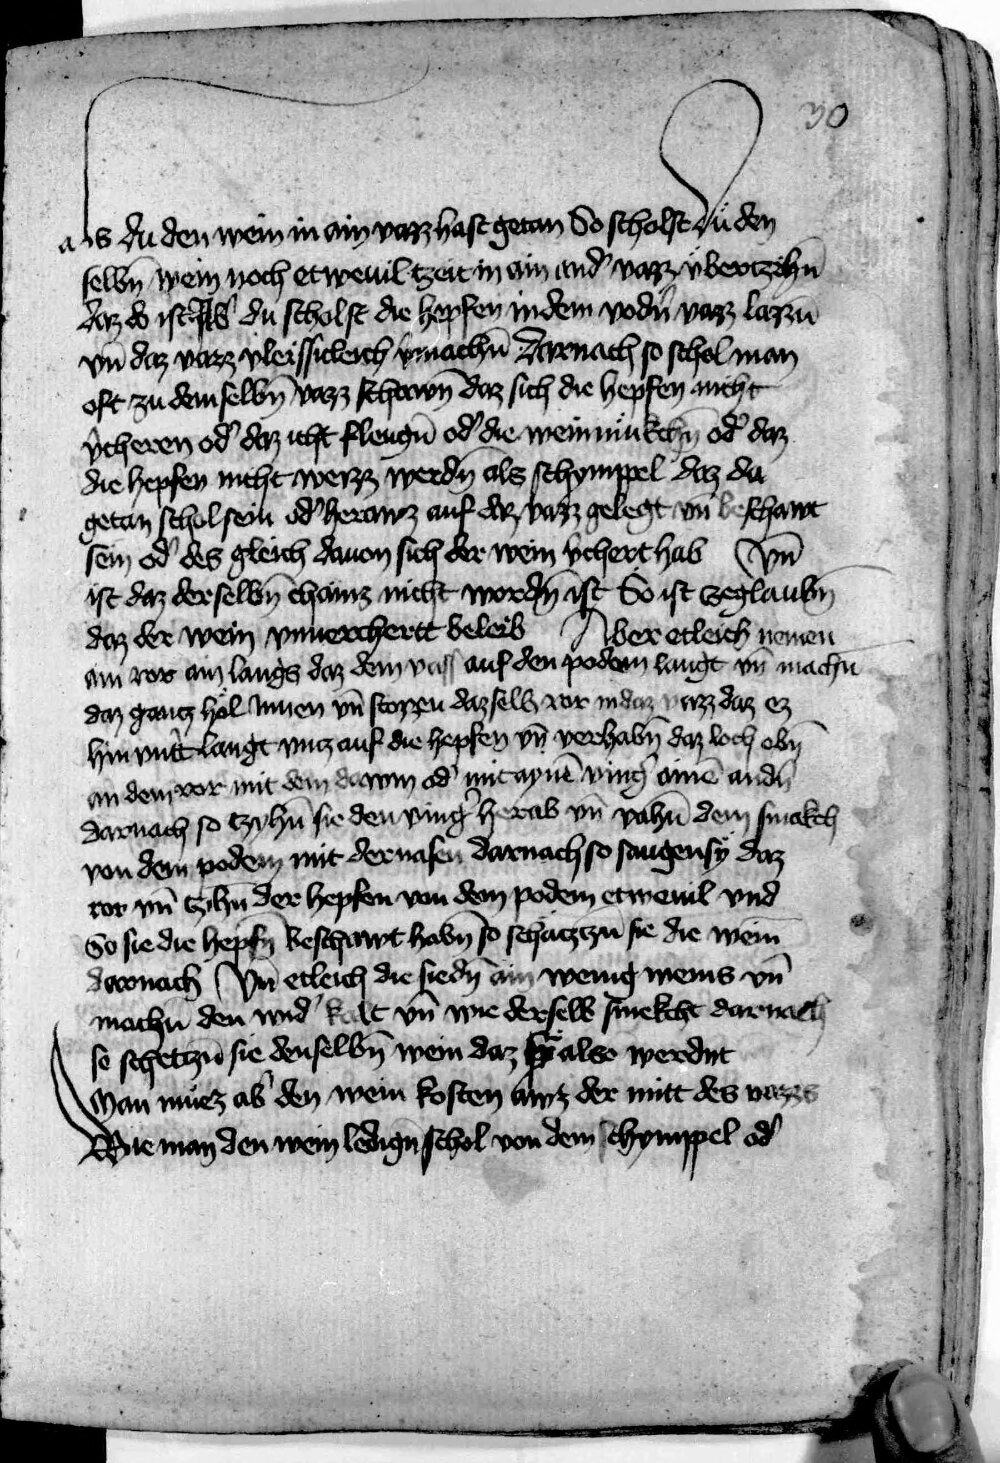 30
als du den wein in ain vazz hast getan So scholst du den
selbn̄ wein noch etweuil tzeit in ain and' vazz vbertzihn̄
daz do ist Ab' du scholst die hepfen in dem vodn̄ vazz lazzn̄
vn̄ daz vazz vleissicleich v'machn̄ Darnach so schol man
oft zu dem selbn̄ vazz schawn̄ daz sich die hepfen nicht
v'cheren od' daz icht fleugn̄ od' die weinmukchn̄ od' daz
die hepfen nicht weizz werdn̄ als schymppel daz da
getan schol sein od' herawz auf daz vazz gelegt vn̄ beschawt
sein od' des gleich dauon sich der wein v'chert hab Vn̄
ist daz derselbn̄ chainz nicht wordn̄ ist So ist zeglaubn̄
daz der wein vnuerchertt beleib Aber etleich nemen
ain ror ain langs daz dem vass auf den podem langt vn̄ machn̄
daz gantz hol Innen vn̄ stozzn̄ dazselb ror in daz vazz daz ez
hin vntt' langt vntz auf die hepfen vn̄ verhabn̄ daz loch obn̄
an dem ror mit dem dawm od' mit aynē ving' ainē andn̄
darnach so tzyhn̄ sie den ving' herab vn̄ vahn̄ dem smakch
von dem podem mit der nasen darnach so saugen sy daz
ror vn̄ tzihn̄ der hepfen von dem podem etweuil vnd
So sie die hepfn̄ beschawt habn̄ so schatzzn̄ sie die wein
darnach Vn̄ etleich die siedn̄ ain wenig weins vn̄
machn̄ den wid' kalt vn̄ wie derselb smekcht darnach
so schetzn̄ sie denselbn̄ wein daz also werdnt
Man muez ab' den wein kosten awz der mitt des vazzs
Wie man den wein ledign̄ schol von dem schymppel od'